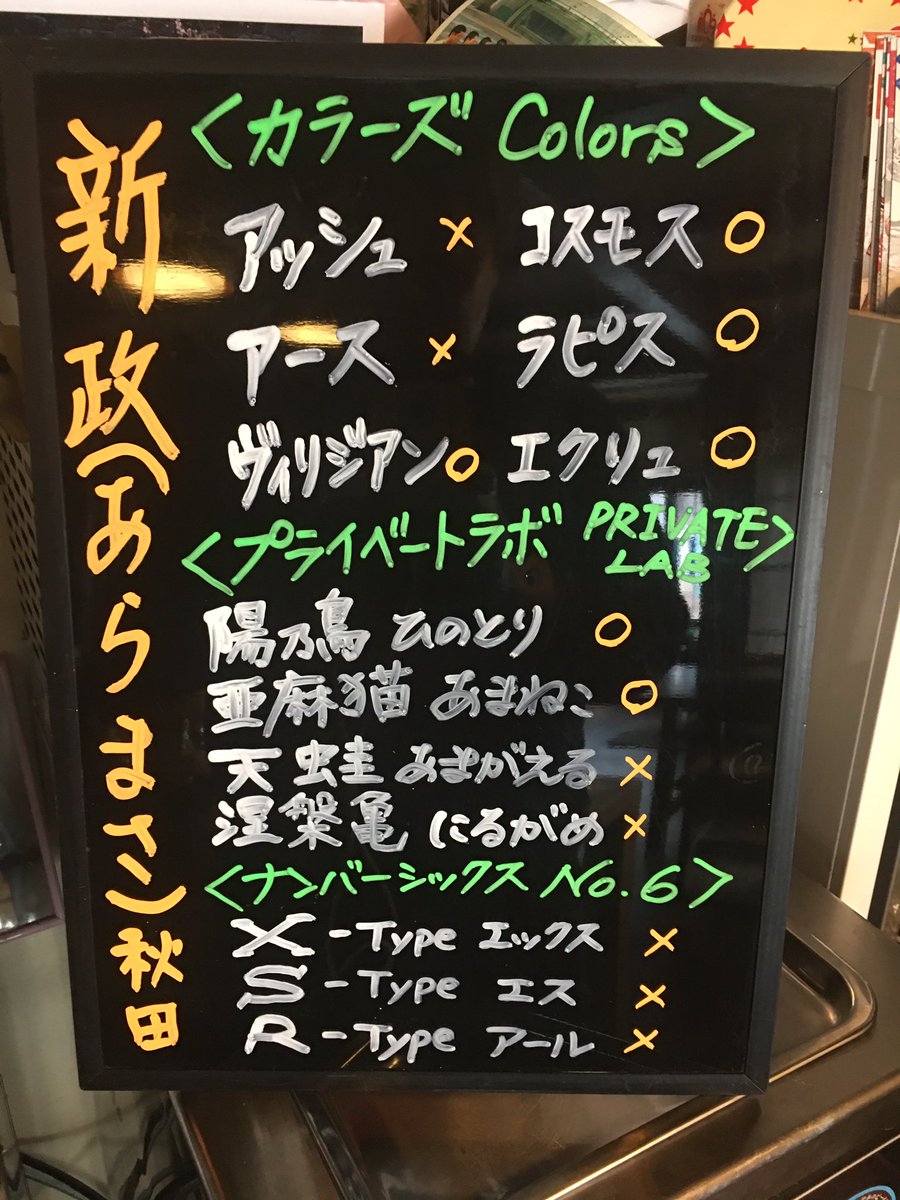 新政(あらまさ)秋田
<カラーズ Colors>
アッシュ × コスモス ○
アース × ラピス ○
ヴィリジアン ○ エクリュ ○
<プライベートラボ PRIVATE LAB>
陽乃鳥 ひのとり ○
亜麻猫 あまねこ ○
天蛙 あまがえる ×
涅槃亀 にるがめ ×
<ナンバーシックス No.6>
X-Type エックス ×
S-Type エス ×
R-Type アール ×